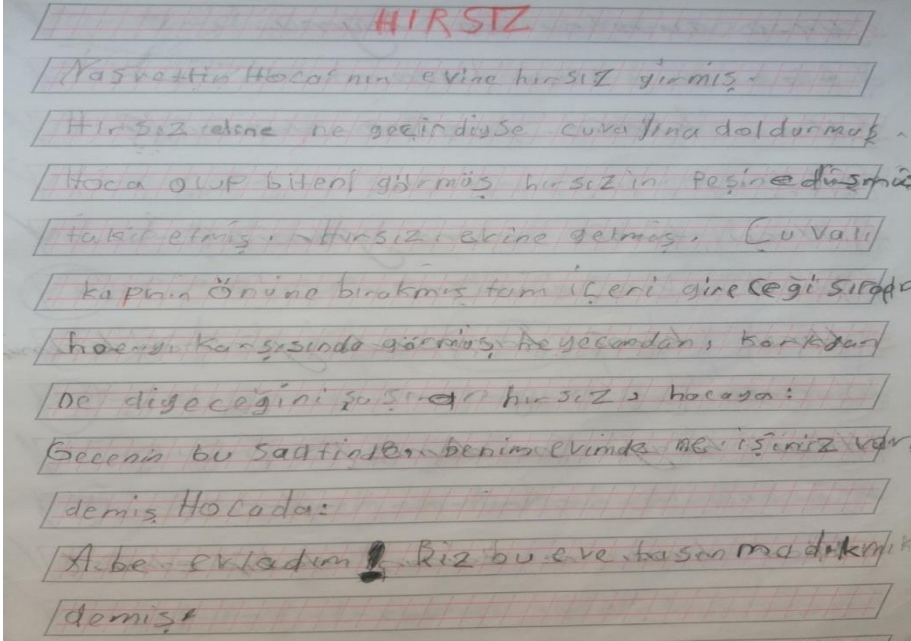 HIRSIZ
Nasrettin Hoca'nın evine hırsız girmiş.
Hırsız eline ne geçirdiyse çuvalına doldurmuş.
Hoca olup biteni görmüş hırsızın peşine düşmüş
takip etmiş. Hırsız evine gelmiş. Çuvalı
kapının önüne bırakmış tam içeri gireceği sırada
hocayı karşısında görmüş heyecandan, korkudan
ne diyeceğini şaşıran hırsız, hocaya:
Gecenin bu saatinde benim evimde ne işiniz var
demiş Hocada:
A be evladım! Biz bu eve taşınmadıkmık
demiş.